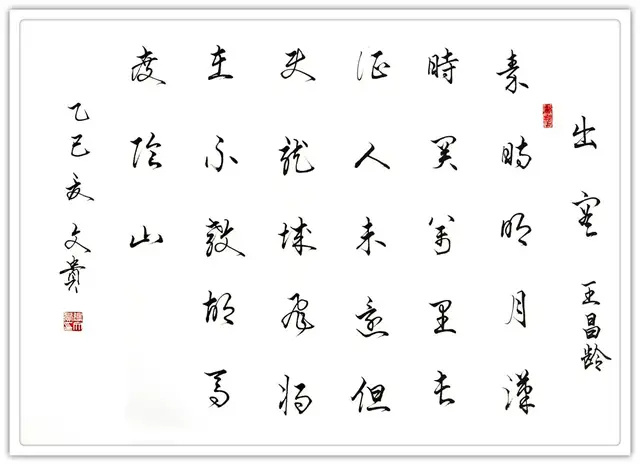 出塞 王昌齡
秦時明月漢
時關萬里長
征人未還但
使龍城飛將
在不教胡馬
度陰山
乙巳夏 文貴